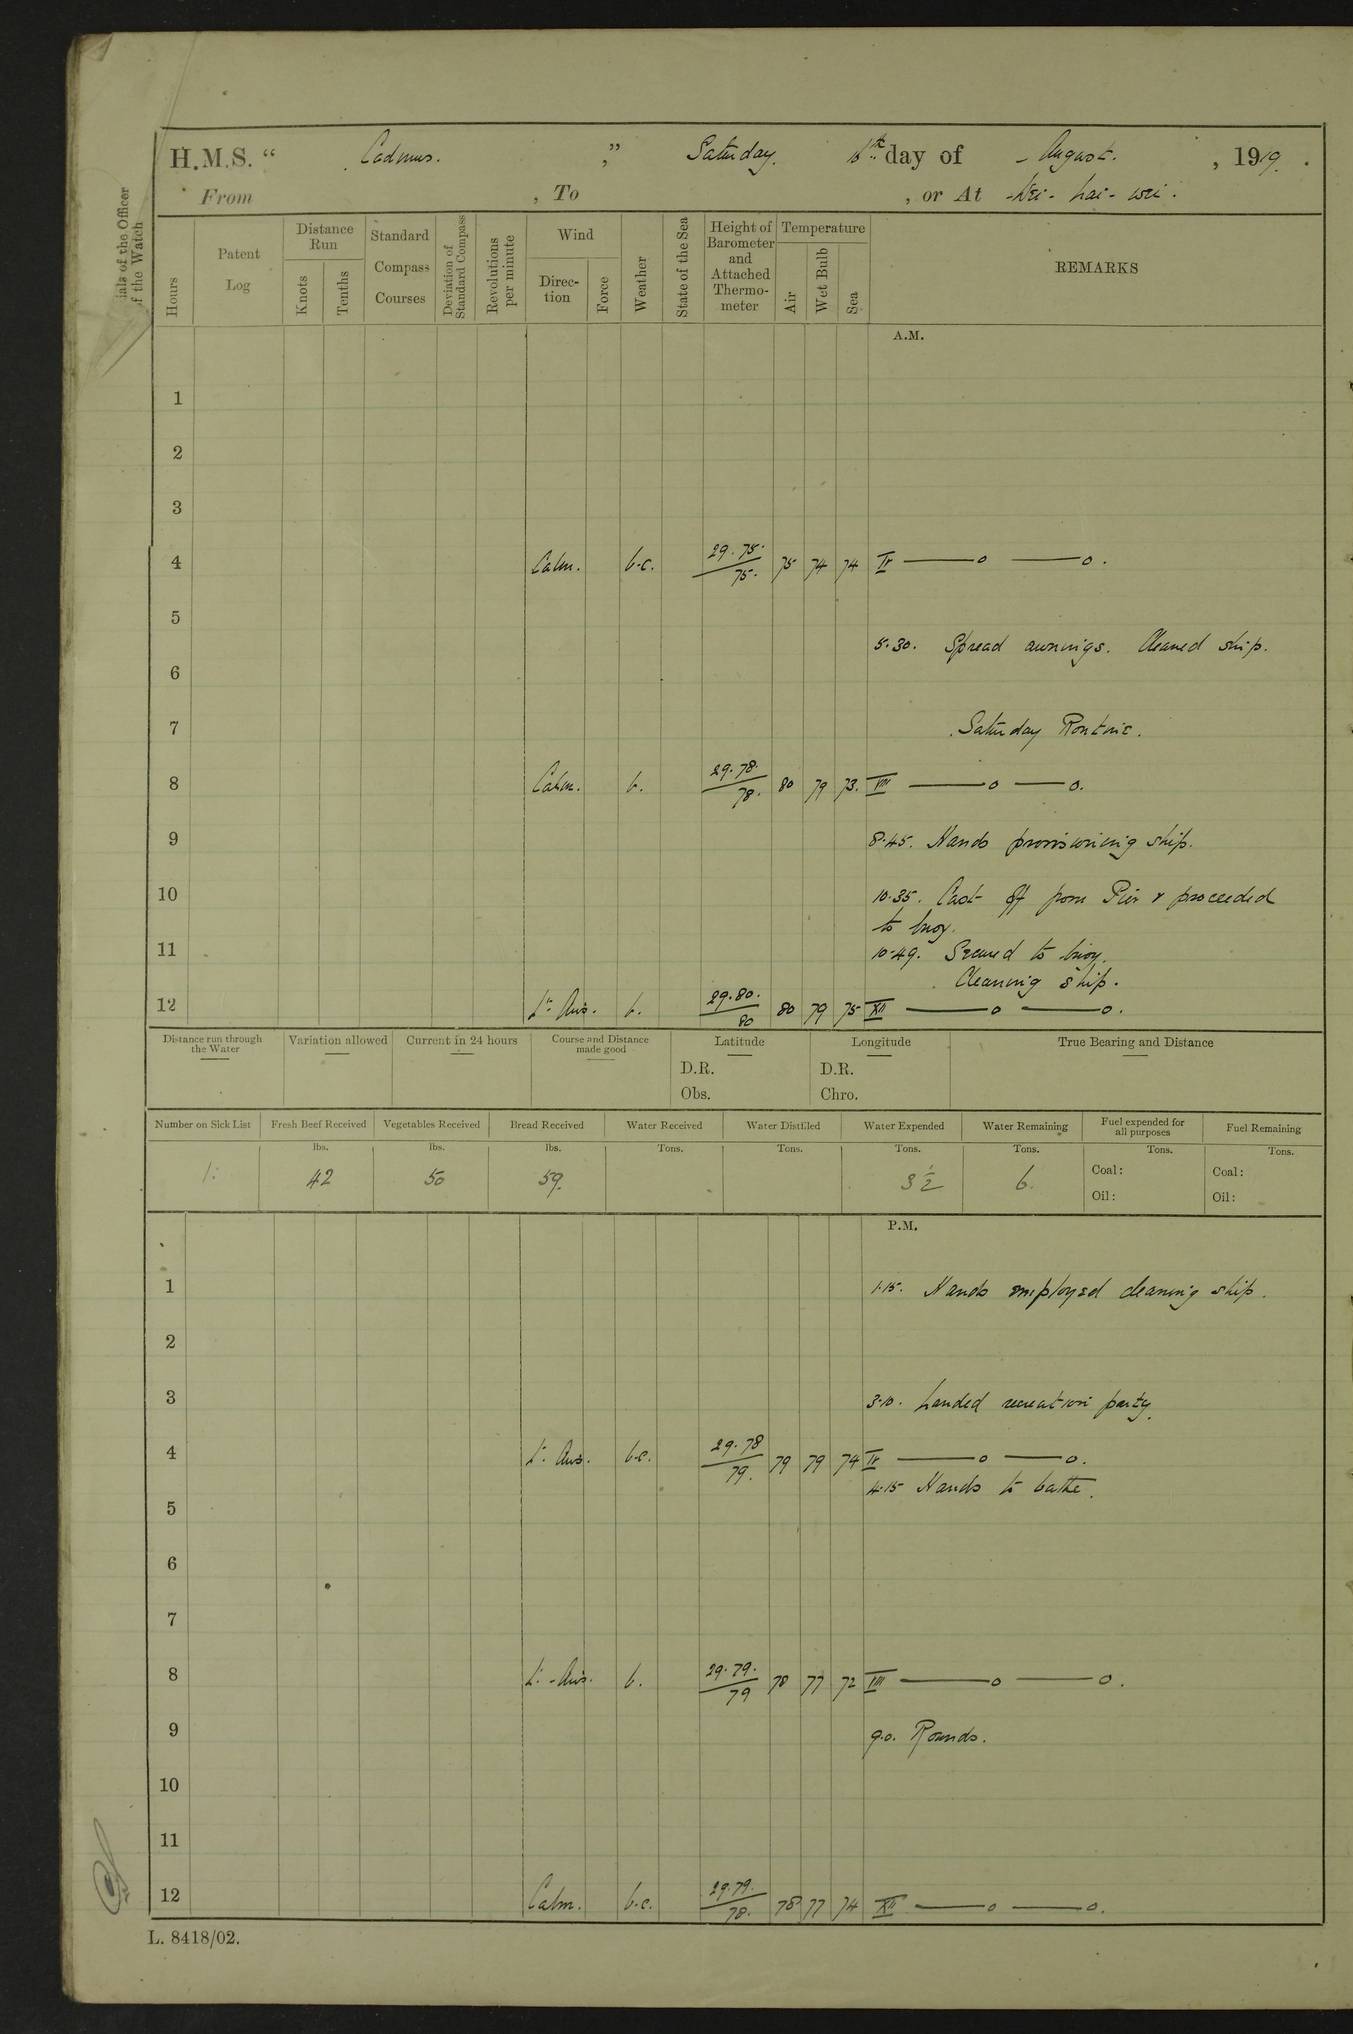 H.M.S. “ Cadmus. ,” Saturday. 16th day of August. , 1919.
From , To , or At Wei-hai-wei.
ials of the Officer
of the Watch
Hours
Patent
Log
Distance
Run
Knots
Tenths
Standard
Compass
Courses
Deviation of
Standard Compass
Revolutions
per minute
Wind
Direc-
tion
Force
Weather
State of the Sea
Height of
Barometer
and
Attached
Thermo-
meter
Temperature
Air
Wet Bulb
Sea
REMARKS
A.M.
1
2
3
4 Calm. b.c. 29.75. 75. 75 74 74 IV ——o ——o.
5
5.30. Spread awnings. Cleaned ship.
6
7 Saturday Routine.
8 Calm. b. 29.78. 78. 80 79 73. VIII ——o ——o.
9 8.45. Hands provisioning ship.
10 10.35. Cast off from Pier & proceeded
to buoy.
11 10.49. Secured to buoy.
Cleaning ship.
12 Lt. Airs. b. 29.80. 80 80 79 75 XII ——o ——o.
Distance run through
the Water
Variation allowed
Current in 24 hours
Course and Distance
made good
Latitude
D.R.
Obs.
Longitude
D.R.
Chro.
True Bearing and Distance
Number on Sick List Fresh Beef Received Vegetables Received Bread Received Water Received Water Distilled Water Expended Water Remaining Fuel expended for
all purposes Fuel Remaining
lbs. lbs. lbs. Tons. Tons. Tons. Tons. Tons. Tons.
1. 42 50 59. 3½ 6. Coal: Coal:
Oil: Oil:
P.M.
1 1.15. Hands employed cleaning ship.
2
3 3.10. Landed recreation party.
4 Lt. Airs. b.c. 29.78 79. 79 79 74 IV ——o ——o.
4.15 Hands to bathe.
5
6
7
8 Lt. Airs. b. 29.79. 79 78 77 72 VIII ——o ——o.
9 9.0. Rounds.
10
11
12 Calm. b.c. 29.79. 78. 78 77 74 XII ——o ——o.
L. 8418/02.